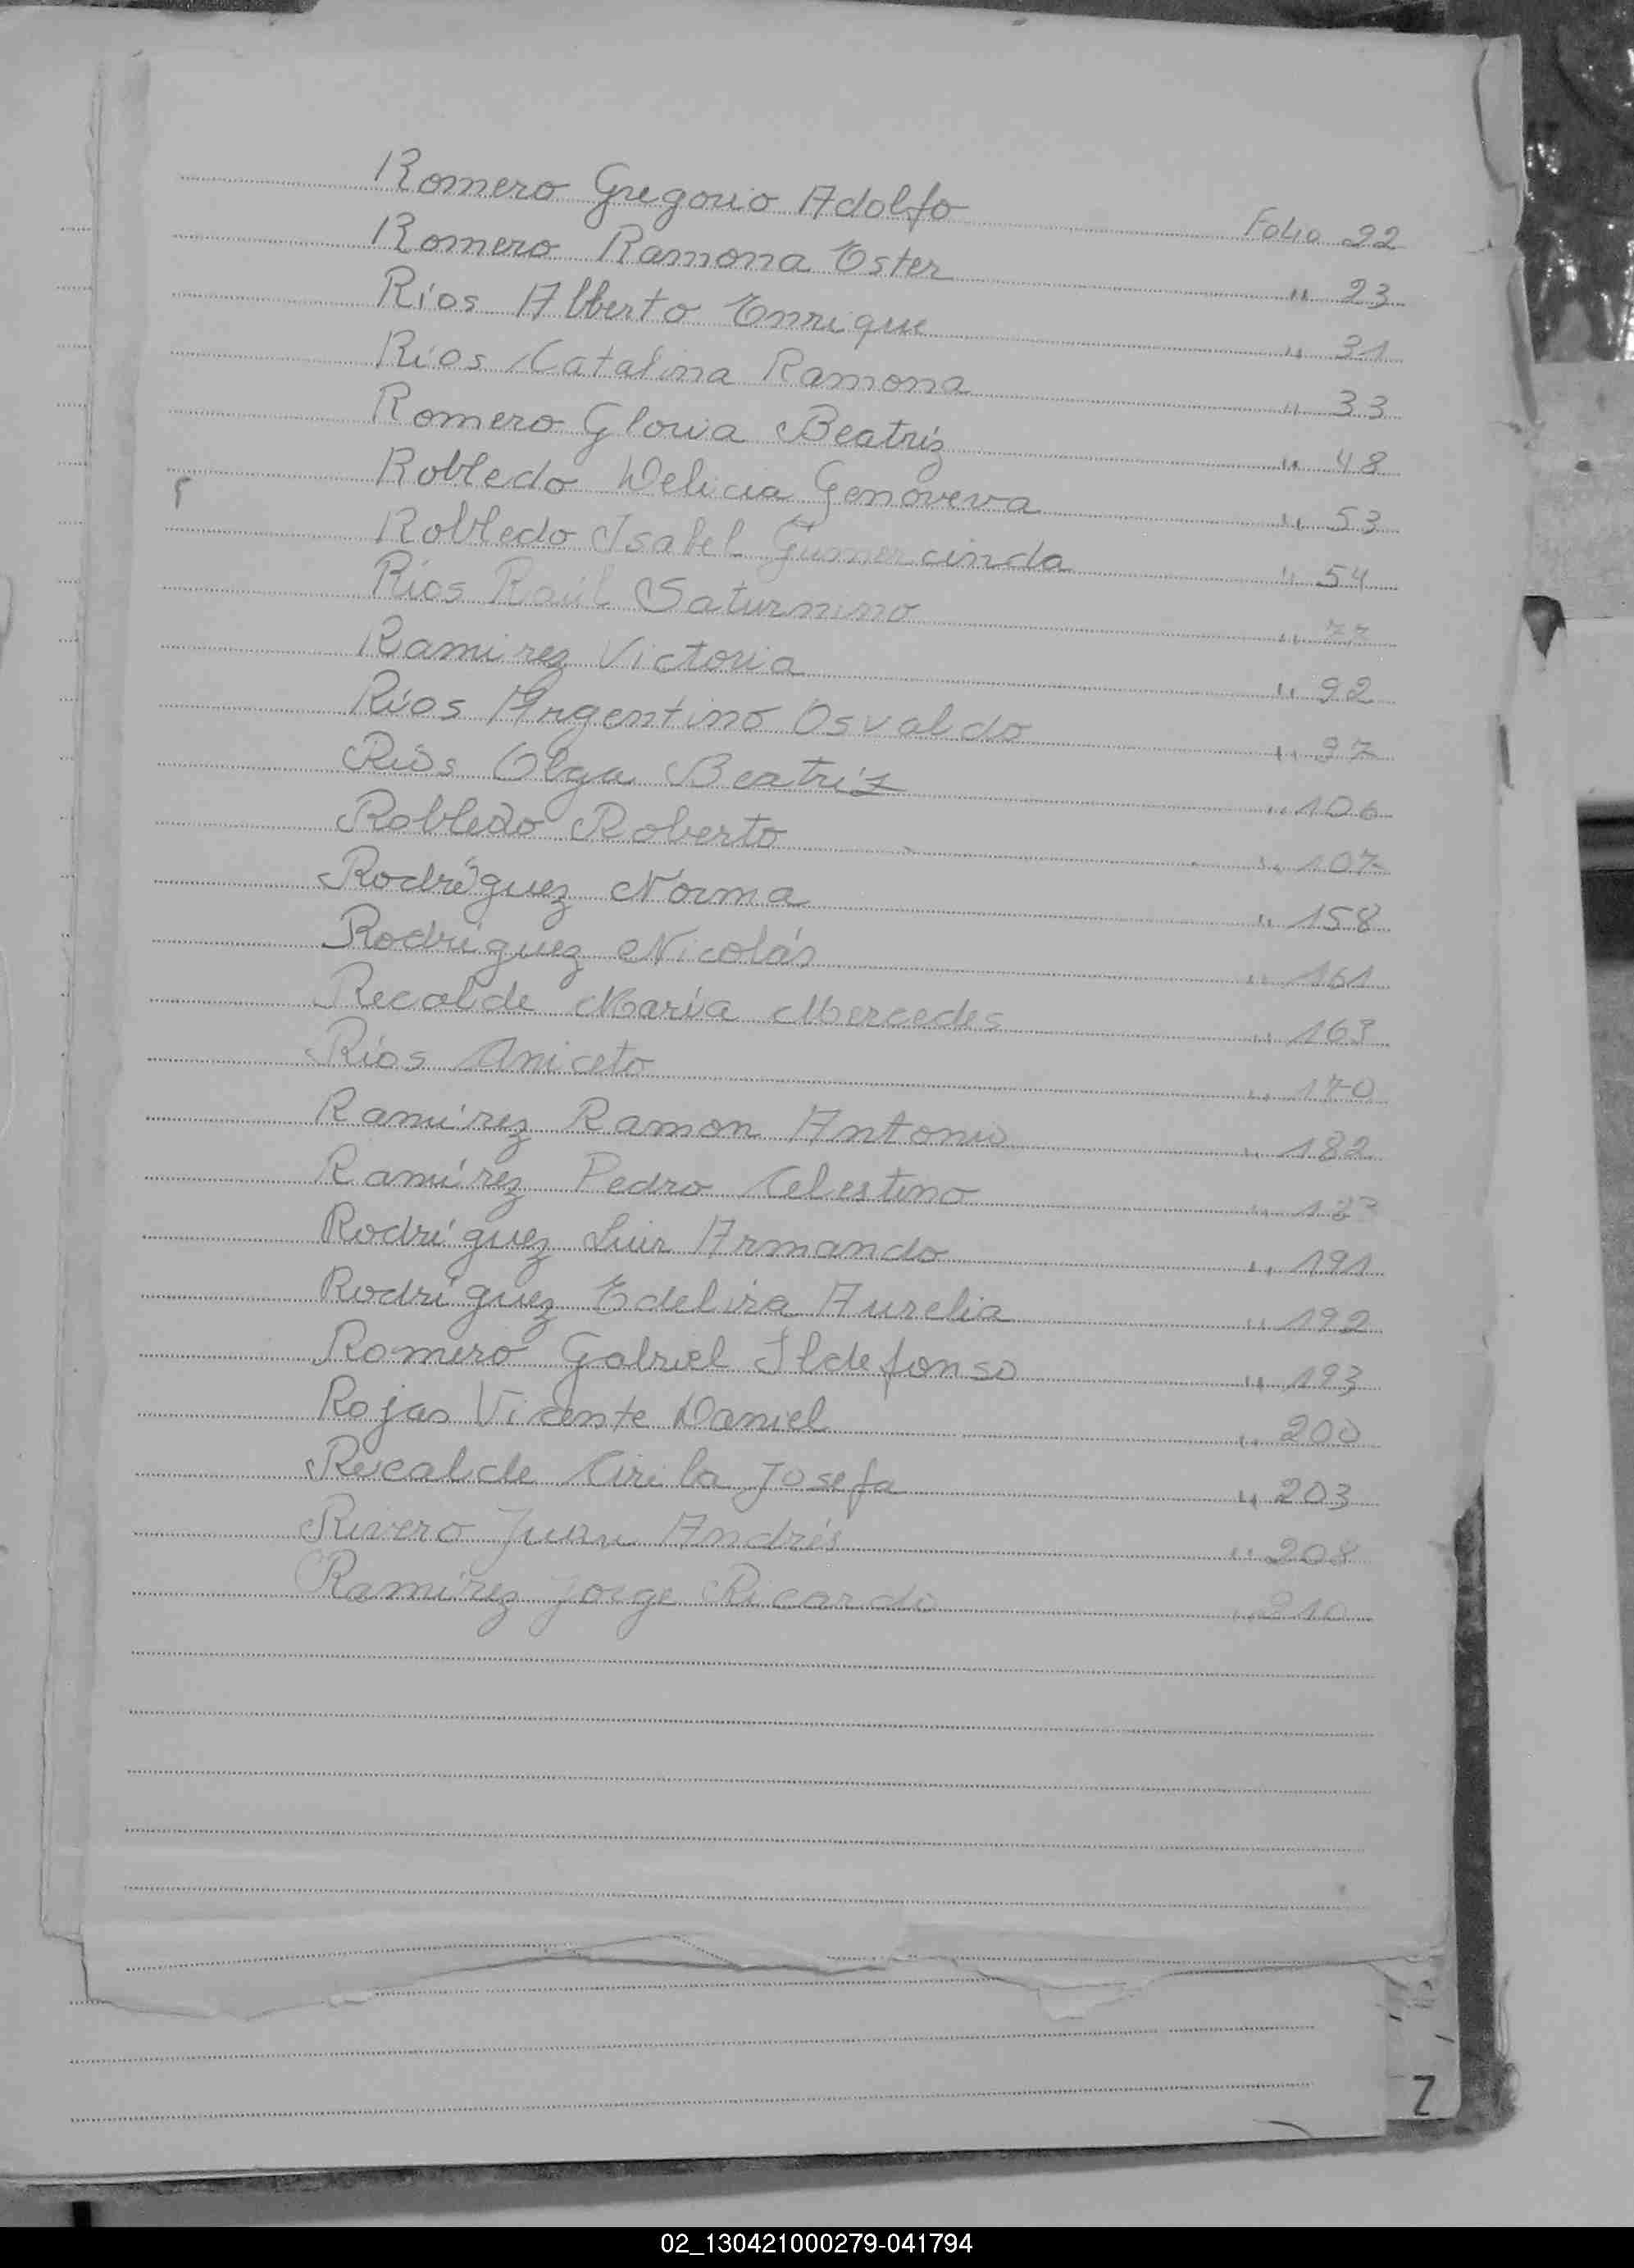 Romero Gregorio Adolfo Folio 22
Romero Ramona Ester " 23
Ríos Alberto Enrique " 31
Ríos Catalina Ramona " 33
Romero Gloria Beatriz " 48
Robledo Delicia Genoveva " 53
r
Robledo Isabel Gumercinda " 54
Ríos Raúl Saturnino " 77
Ramirez Victoria " 92
Ríos Argentino Osvaldo " 97
Ríos Olga Beatriz " 106
Robledo Roberto " 107
Rodríguez Norma " 158
Rodríguez Nicolás " 161
Recalde María Mercedes " 163
Ríos Aniceto " 170
Ramírez Ramon Antonio " 182
Ramírez Pedro Celestino "
Rodríguez Luir Armando " 191
Rodríguez Edelira Aurelia " 192
Romero Gabriel Ildefonso " 193
Rojas Vicente Daniel " 200
Recalde Cirila Josefa " 203
Rivero Juan Andrés " 208
Ramírez Jorge Ricardo " 210
Z
02_130421000279-041794